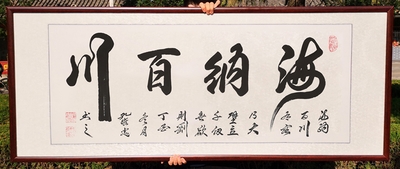 海纳百川
海纳
百川
有容
乃大
壁立
千仞
无欲
则刚
丁酉
冬月
书之